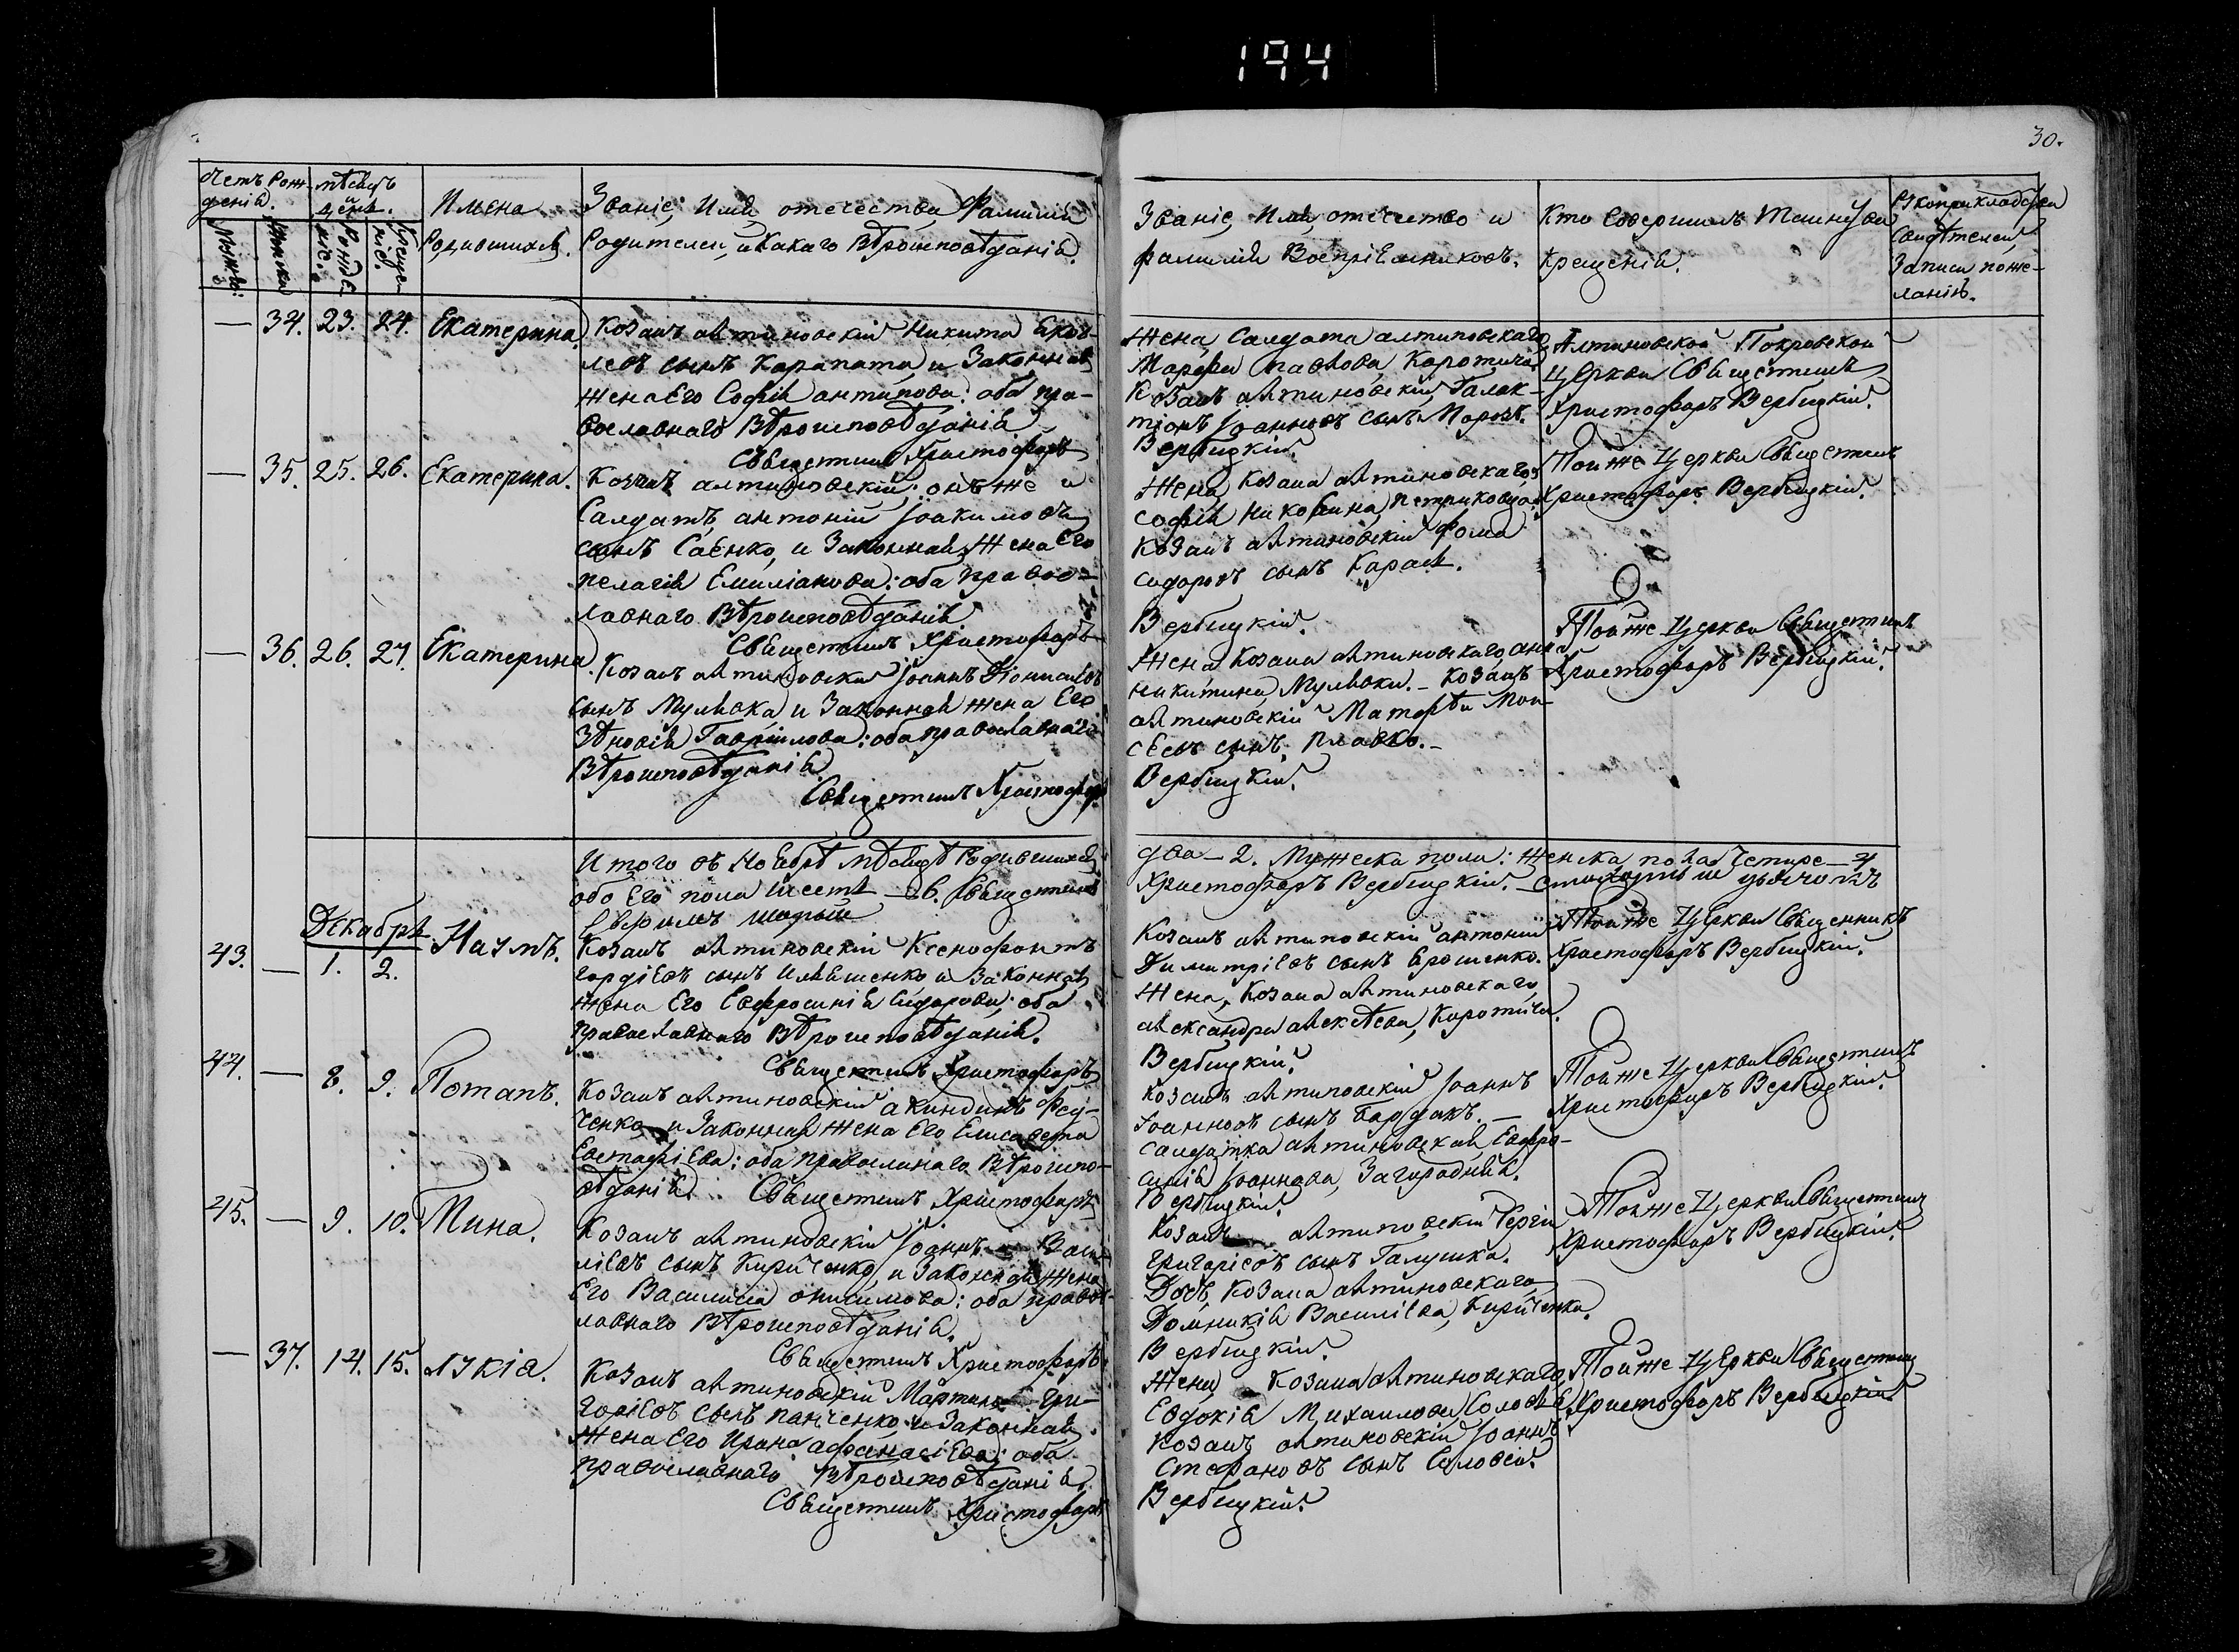 194
30.
Счетъ Рож-
деній.
мѣсяцъ
и
день.
Имена
Родившихся.
Званіе, Имя, отечество, Фамилія
Родителей, и Какого Вѣроисповѣданія.
Званіе, Имя, отечество и
фамилія Воспріемниковъ.
Кто Совершалъ Таинство
Крещенія.
Рукоприкладство
Свидѣтелей
Записи по же-
ланію.
— 34. 23. 24. Екатерина
Козакъ алтиновскій Никита
сынъ Карапата, и Законная
жена Его Софія антипова: оба пра-
вославнаго Вѣроисповѣданія
Священникъ Христофоръ
Жена Салдата алтиновскаго
Марфа павлова Коротича.
Козакъ алтиновскій Галак-
тіонъ Іоанновъ сынъ Морозъ.
Вербицкій.
Алтиновской Покровской
Церкви Священникъ
Христофоръ Вербицкій.
— 35. 25. 26. Екатерина.
Козакъ алтиновскій: онъ же и
Салдатъ антоній Іоакимовъ
сынъ Саенко, и Законная Жена Его
пелагія Емиліанова: оба правос-
лавнаго Вѣроисповѣданія
Священникъ Христофоръ
Жена Козака алтиновскаго,
софія
Козакъ алтиновскій Фома
сидоровъ сынъ Карась.
Вербицкій.
Тойже Церкви Священникъ
Христофоръ Вербицкій.
— 36. 26. 27. Екатерина
Козакъ алтиновскій Іоаннъ Діонисіевъ
сынъ Мулявка, и Законная жена Его
Зѣновія Гавріилова: оба православнаго
Вѣроисповѣданія
Священникъ Христофоръ
Жена Козака алтиновскаго, анна
никитина Мулявки. — Козакъ
алтиновскій Матвѣй Мои-
сеевъ сынъ
Вербицкій.
Тойже Церкви Священникъ
Христофоръ Вербицкій.
Итого въ Ноябрѣ мѣсяцѣ Родившихся
обоего пола шесть — 6. Священникъ
два — 2. Мужеска пола: женска пола четыре — 4
Христофоръ Вербицкій.
Декабрь
43. — 1. 2. Наумъ.
Козакъ алтиновскій Ксенофонтъ
гордіевъ сынъ Ильяшенко, и Законная
жена Его Евфросинія Сидорова: оба
Православнаго Вѣроисповѣданія.
Священникъ Христофоръ
Козакъ алтиновскій антоній
Димитріевъ сынъ Ярошенко.
Жена, Козака алтиновскаго,
александра алексѣева, Коротича.
Вербицкій.
Тойже Церкви Священникъ
Христофоръ Вербицкій.
44. — 8. 9. Потапъ.
Козакъ алтиновскій акиндинъ Фед-
ченко, и Законная жена Его Елисавета
Евстафіева: оба православнаго Вѣроиспо-
вѣданія. Священникъ Христофоръ
Козакъ алтиновскій Іоаннъ
Іоанновъ сынъ Бардакъ. —
Салдатка алтиновская, Евфро-
синія Іоаннова, Загородняя.
Вербицкій.
Тойже Церкви Священникъ
Христофоръ Вербицкій.
45. — 9. 10. Мина.
Козакъ алтиновскій Іоаннъ Васи-
ліевъ сынъ Кириченко, и Законная Жена
Его Василиса онисимова: оба правос-
лавнаго Вѣроисповѣданія.
Священникъ Христофоръ
Козакъ алтиновскій Сергій
Григоріевъ сынъ Галушка.
Дочь Козака алтиновскаго,
Домникія Василіева, Кириченка.
Вербицкій.
Тойже Церкви Священникъ
Христофоръ Вербицкій.
— 37. 14. 15. Лукія.
Козакъ алтиновскій Мартинъ Гри-
горіевъ сынъ панченко, и Законная
Жена Его Ирина афанасіева: оба
православнаго Вѣроисповѣданія.
Священникъ Христофоръ
Жена Козака алтиновскаго,
Евдокія Михаилова
Козакъ алтиновскій Іоаннъ
Стефановъ сынъ Соловей.
Вербицкій.
Тойже Церкви Священникъ
Христофоръ Вербицкій.